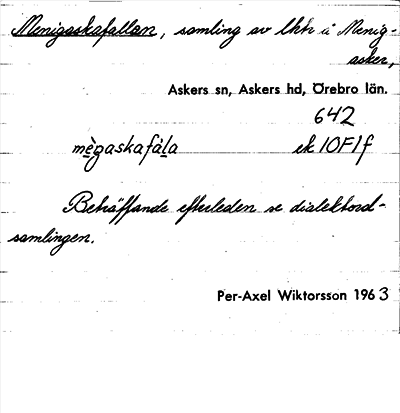 Menigaskafallan, samling av lhtr i Menig-
asker,
Askers sn, Askers hd, Örebro län.
642
mègaskafála ek 10F1f
Beträffande efterleden se dialektord-
samlingen.
Per-Axel Wiktorsson 1963